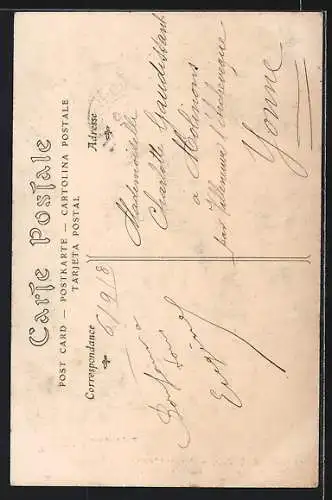 Carte Postale
POST CARD — POSTKARTE — CARTOLINA POSTALE
TARJETA POSTAL
Correspondance
6/9/8
Bonjour à
tous
Adresse
Mademoiselle
Charlotte Gaudissant
à Molinons
par Villeneuve l'Archevêque
Yonne